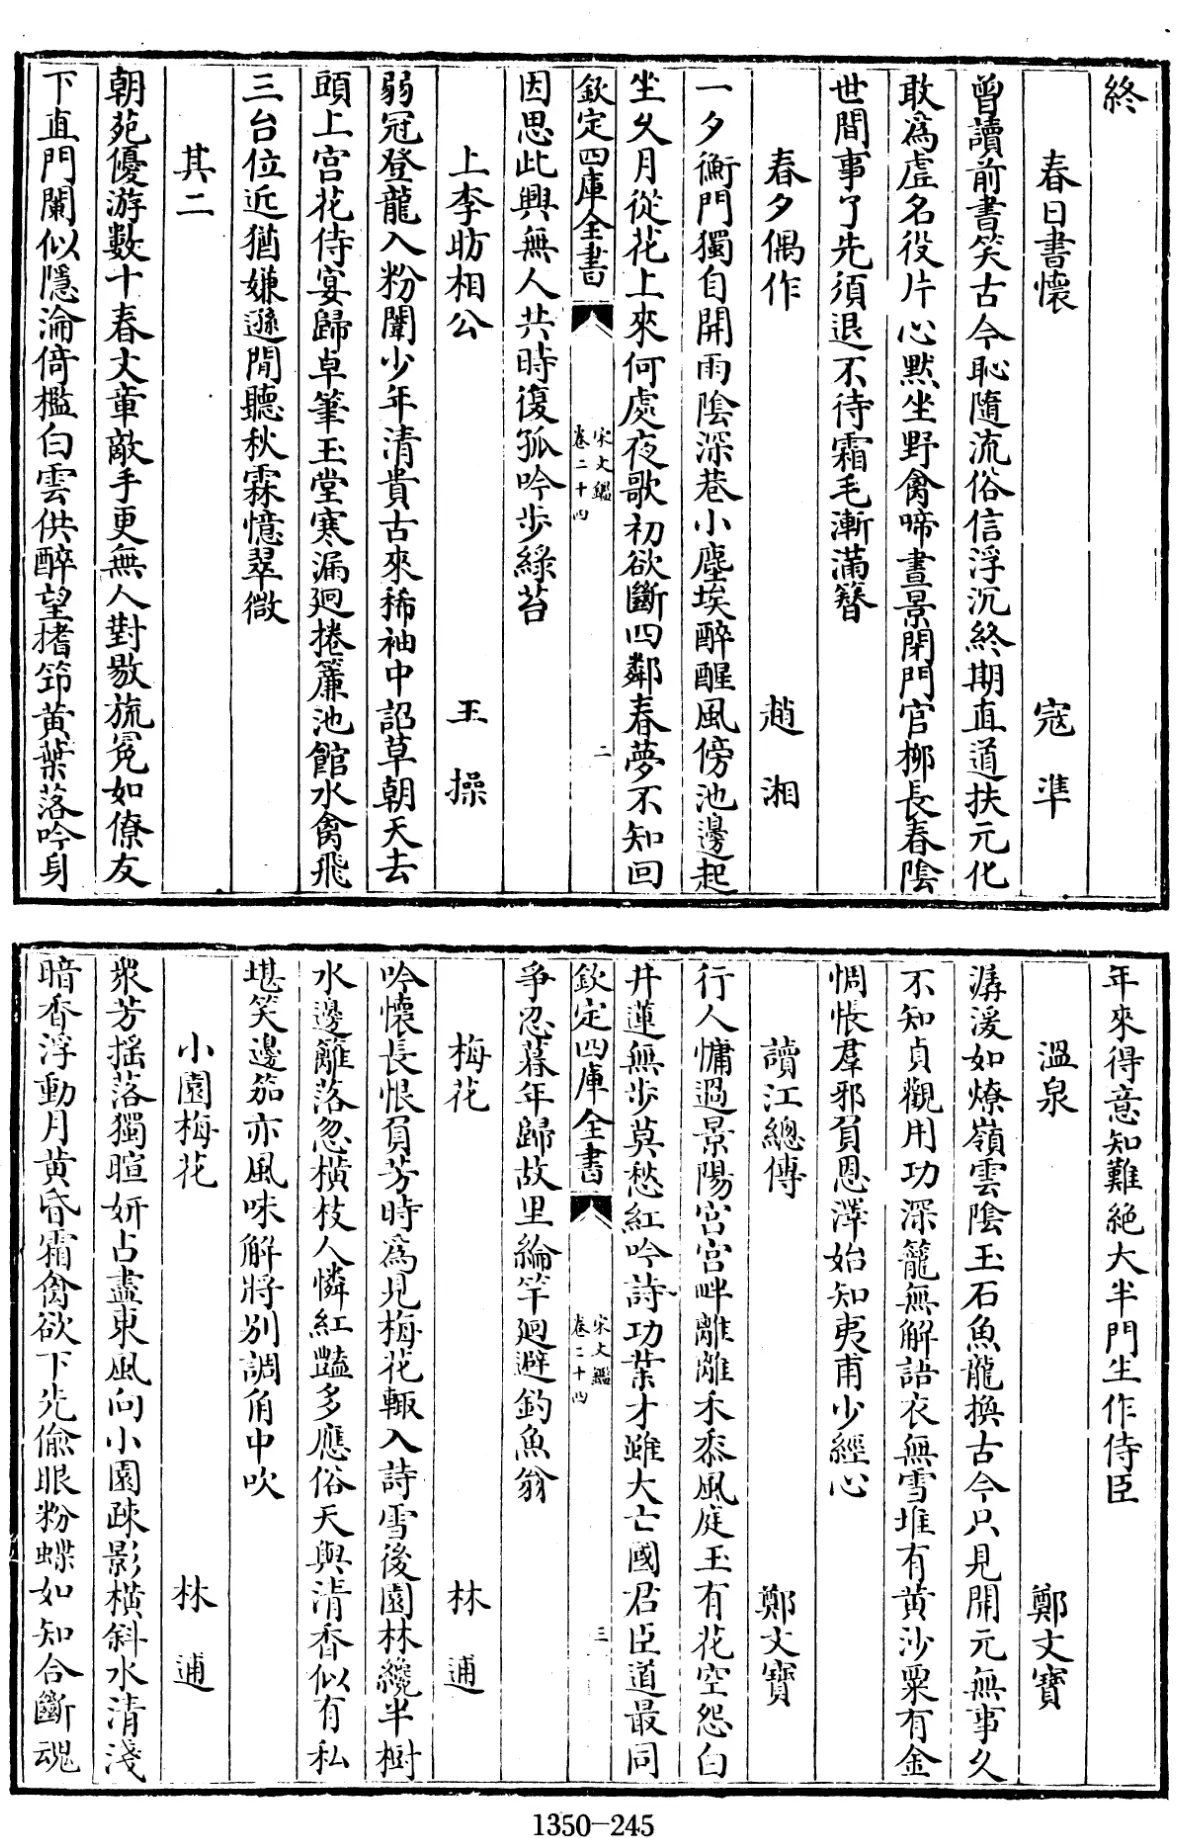 終
春日書懷 寇準
曾讀前書笑古今恥隨流俗信浮沉終期直道扶元化
敢爲虛名役片心黙坐野禽啼晝景閉門官栁長春陰
世間事了先須退不待霜毛漸滿簪
春夕偶作 趙湘
一夕衡門獨自開雨陰深巷小塵埃醉醒風傍池邊起
坐久月從花上來何處夜歌初欲斷四鄰春夢不知回
欽定四庫全書 宋文鑑 卷二十四 二
因思此興無人共時復孤吟步綠苔
上李昉相公 王操
弱冠登龍入粉闈少年清貴古來稀袖中詔草朝天去
頭上宫花侍宴歸卓筆玉堂寒漏迥捲簾池館水禽飛
三台位近猶嫌遜閒聽秋霖憶翠微
其二
朝苑優游數十春文章敵手更無人對敭旒冕如僚友
下直門闌似隱淪倚檻白雲供醉望揩笻黄葉落吟身
年來得意知難絶大半門生作侍臣
溫泉 鄭文寶
潺湲如燎嶺雲陰玉石魚龍換古今只見開元無事久
不知貞觀用功深籠無解語衣無雪堆有黄沙粟有金
惆悵羣邪負恩澤始知夷甫少經心
讀江總傳 鄭文寶
行人慵過景陽宫宫畔離離禾黍風庭玉有花空怨白
井蓮無步莫愁紅吟詩功業才雖大亡國君臣道最同
欽定四庫全書 宋文鑑 卷二十四 三
爭忍暮年歸故里綸竿廻避釣魚翁
梅花 林逋
吟懷長恨負芳時爲見梅花輙入詩雪後園林纔半樹
水邊籬落忽横枝人憐紅豔多應俗天與清香似有私
堪笑邊笳亦風味解將别調角中吹
小園梅花 林逋
衆芳揺落獨暄妍占盡東風向小園疎影横斜水清淺
暗香浮動月黄昏霜禽欲下先偷眼粉蝶如知合斷魂
1350-245